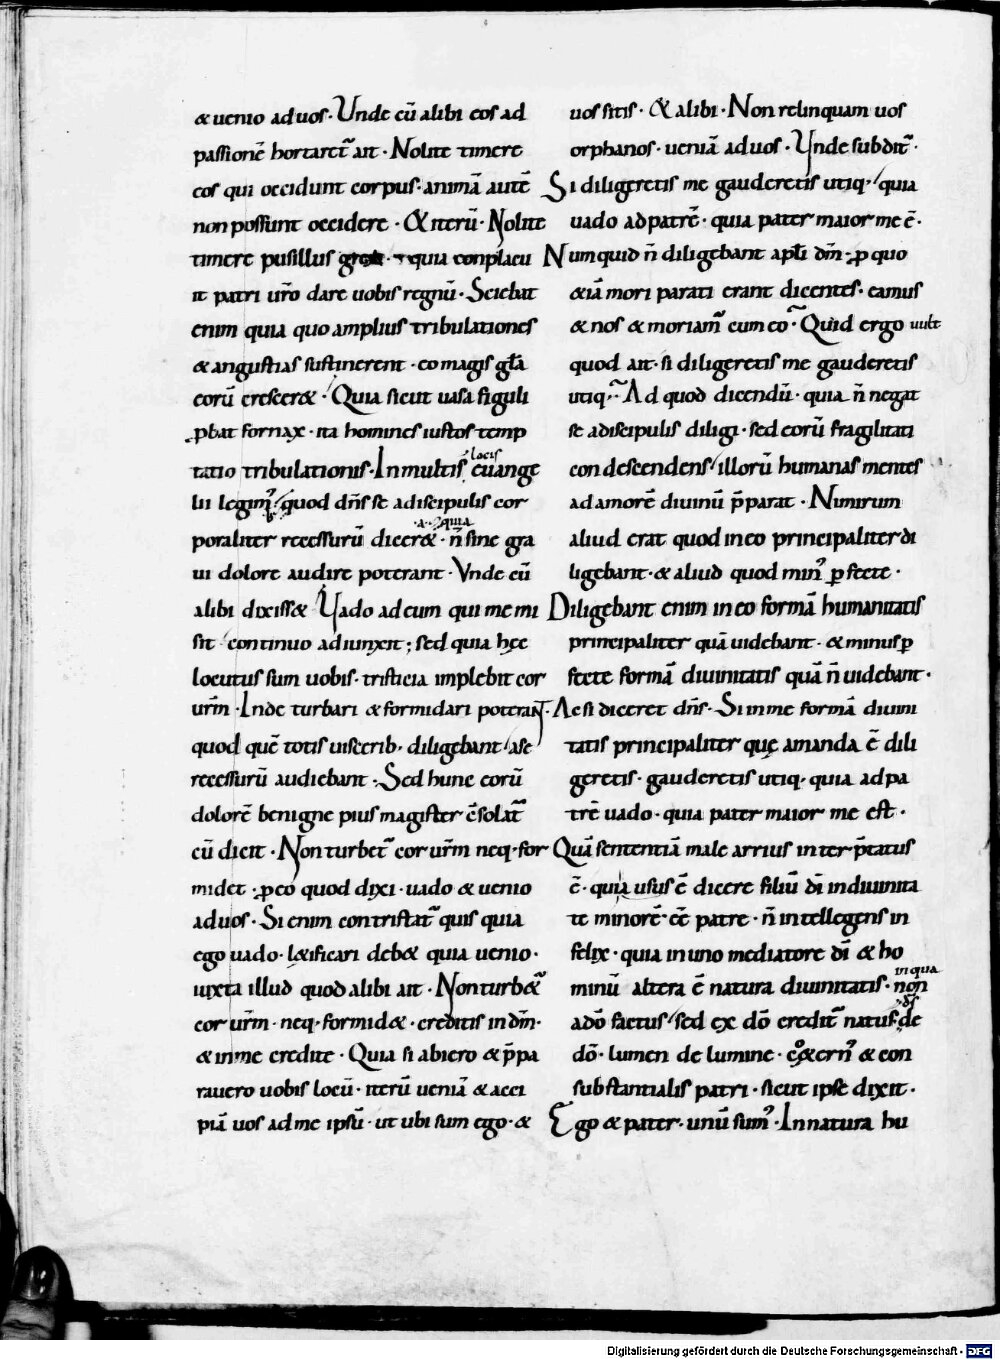 & uenio ad uos. Unde cū alibi eos ad
passionē hortaret᷑ ait. Nolite timere
eos qui occidunt corpus. animā autē
non possunt occidere. Et iterū. Nolite
timere pusillus grex. quia conplacu
it patri uro dare uobis regnū. Sciebat
enim quia quo amplius tribulationes
& angustias sustinerent. eo magis gła
eorū cresceret&. Quia sicut uasa figuli
ꝓbat fornax. ita homines iustos temp
tatio tribulationis. In multis locis euange
lii legim᷒. quod dn̄s se a discipulis cor
poraliter recessurū dicer&. quia n̄ sine gra
ui dolore audire poterant. Unde cū
alibi dixiss& Uado ad eum qui me mi
sit. continuo adiunxit; sed quia hęc
locutus sum uobis. tristicia implebit cor
ur̄m. Inde turbari & formidari poterant.
quod quē totis uiscerib; diligebant a se
recessurū audiebant. Sed hunc eorū
dolorē benigne pius magister c̄solat᷑
cū dicit. Non turbet᷑ cor ur̄m neq; for
midet. ꝓ eo quod dixi. uado & uenio
ad uos. Si enim contristat᷑ quis quia
ego uado. lętificari deb& quia uenio.
iuxta illud quod alibi ait. Non turb&᷑
cor ur̄m. neq; formid&. creditis in dm̄.
& in me credite. Quia si abiero & p̄pa
rauero uobis locū. iterū ueniā & acci
piā uos ad me ipsū. ut ubi sum ego. &
uos sitis. Et alibi. Non relinquam uos
orphanos. ueniā ad uos. Unde subdit᷑.
Si diligeretis me gauderetis utiq; quia
uado ad patrē. quia pater maior me ē.
Numquid n̄ diligebant apłi dm̄. ꝓ quo
& iā mori parati erant dicentes. eamus
& nos & moriam᷑ cum eo. Quid ergo uult
quod ait. si diligeretis me gauderetis
utiq;. Ad quod dicendū. quia n̄ negat
se a discipulis diligi. sed eorū fragilitati
condescendens illorū humanas mentes
ad amorē diuinū p̄parat. Nimirum
aliud erat quod in eo principaliter di
ligebant. & aliud quod min᷒ ꝑfecte.
Diligebant enim in eo formā humanitatis
principaliter quā uidebant. & minus ꝑ
fecte formā diuinitatis quā n̄ uidebant.
Ac si diceret dn̄s. Si in me formā diuini
tatis principaliter quę amanda ē dili
geretis. gauderetis utiq; quia ad pa
trē uado. quia pater maior me est.
Quā sententiā male arrius interp̄tatus
ē. quia usus ē dicere filiū dī in diuinita
te minorē. eē patre. n̄ intellegens in
felix. quia in uno mediatore dī & ho
minū altera ē natura diuinitatis. in qua non
a dō factus sed ex dō credit᷑ natus. ds de
dō. lumen de lumine. coetern᷒ & con
substantialis patri. sicut ipse dixit.
Ego & pater. unū sum᷒. In natura hu
Digitalisierung gefördert durch die Deutsche Forschungsgemeinschaft - DFG